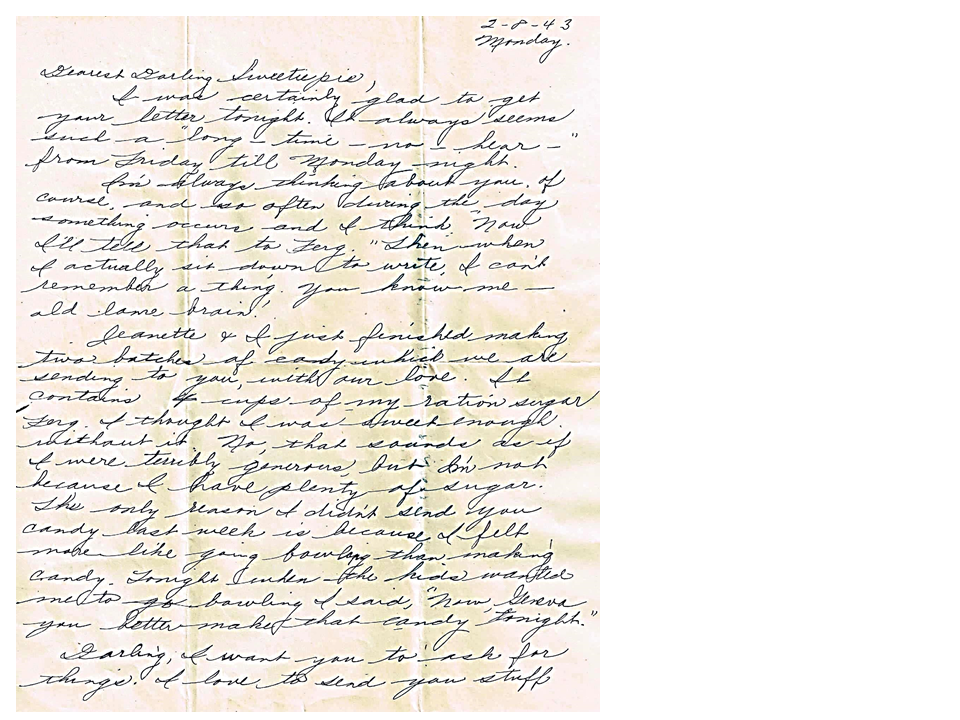 2-8-43
Monday.
Dearest Darling Sweetie pie,
I was certainly glad to get
your letter tonight. It always seems
such a "long - time - no - hear - "
from Friday till Monday night.
I'm always thinking about you, of
course, and so often during the day
something occurs and I think "Now
I'll tell that to Ferg." Then when
I actually sit down to write, I can't
remember a thing. You know me —
old lame brain!
Jeanette & I just finished making
two batches of candy which we are
sending to you, with our love. It
contains 4 cups of my ration sugar
Ferg. I thought I was sweet enough
without it. No, that sounds as if
I were terribly generous, but I'm not
because I have plenty of sugar.
The only reason I didn't send you
candy last week is because I felt
more like going bowling than making
candy. Tonight when the kids wanted
me to go bowling I said, "Now, Geneva
you better make that candy tonight."
Darling, I want you to ask for
things. I love to send you stuff